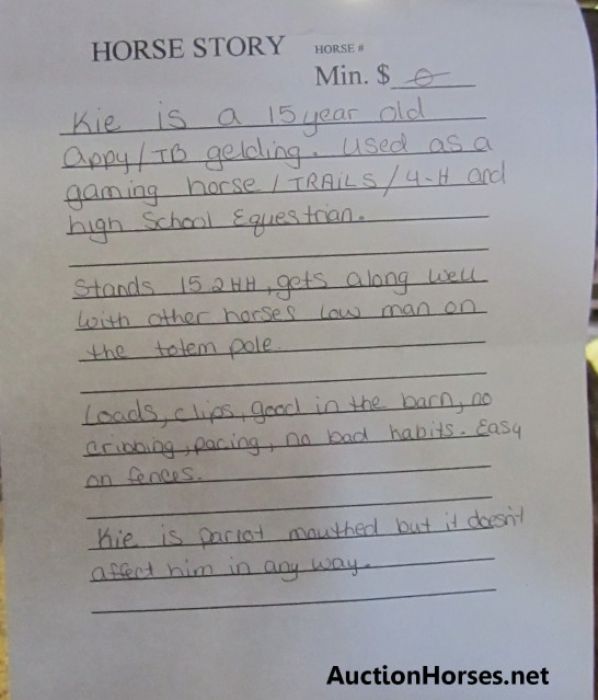 HORSE STORY HORSE #
Min. $ 0
Kie is a 15 year old
appy/TB gelding. Used as a
gaming horse/TRAILS/4-H and
high School Equestrian.
Stands 15 2 HH, gets along well
with other horses low man on
the totem pole.
Loads, clips, good in the barn, no
cribbing, pacing, no bad habits. Easy
on fences.
Kie is parrot mouthed but it doesn't
affect him in any way.
AuctionHorses.net